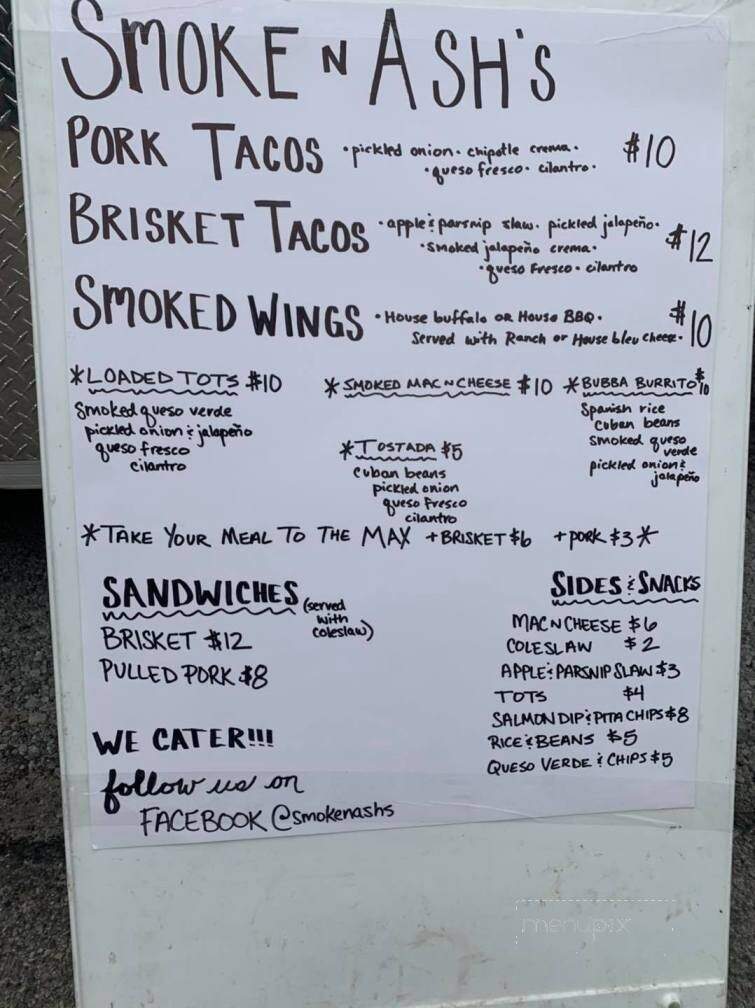 SMOKE N ASH'S
PORK TACOS •pickled onion• chipotle crema• $10
•queso fresco• cilantro•
BRISKET TACOS •apple & parsnip slaw• pickled jalapeño• $12
•smoked jalapeño crema•
•queso fresco• cilantro
SMOKED WINGS •House buffalo OR House BBQ• $10
Served with Ranch or House bleu cheese•
*LOADED TOTS $10
Smoked queso verde
pickled onion & jalapeño
queso fresco
cilantro
*SMOKED MAC N CHEESE $10
*TOSTADA $5
Cuban beans
pickled onion
queso fresco
cilantro
*BUBBA BURRITO $10
Spanish rice
Cuban beans
smoked queso
verde
pickled onion &
jalapeño
*TAKE YOUR MEAL TO THE MAX +BRISKET $6 +PORK $3*
SANDWICHES (served
with
coleslaw)
BRISKET $12
PULLED PORK $8
SIDES & SNACKS
MAC N CHEESE $6
COLESLAW $2
APPLE & PARSNIP SLAW $3
TOTS $4
SALMON DIP & PITA CHIPS $8
RICE & BEANS $5
QUESO VERDE & CHIPS $5
WE CATER!!!
follow us on
FACEBOOK @smokenashs
menupix